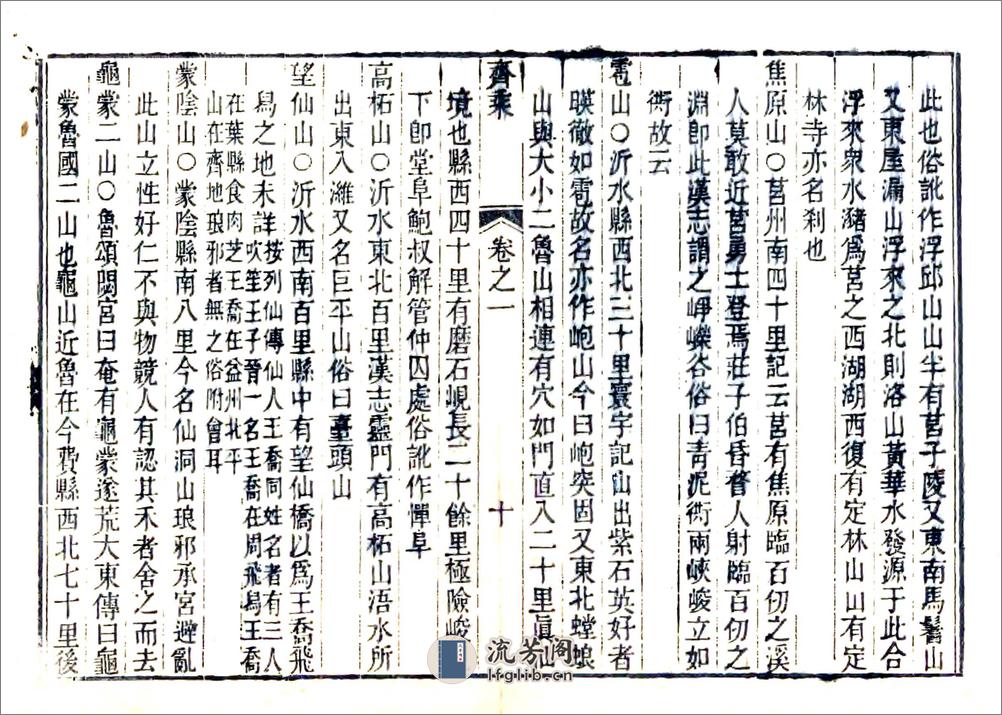 此也俗訛作浮邱山山半有莒子陵又東南馬鬐山
又東屋漏山浮來之北則洛山黃華水發源于此合
浮來眾水瀦爲莒之西湖湖西復有定林山山有定
林寺亦名剎也
焦原山○莒州南四十里記云莒有焦原臨百仞之溪
人莫敢近莒勇士登焉莊子伯昏瞀人射臨百仞之
淵卽此漢志謂之崢嶸谷俗曰青泥衖兩峽峻立如
衖故云
雹山○沂水縣西北三十里寰宇記山出紫石英好者
暎徹如雹故名亦作皰山今曰皰突固又東北螳蜋
山與大小二魯山相連有穴如門直入二十里眞仙
齊乘
卷之一
十
境也縣西四十里有磨石峴長二十餘里極險峻
下卽堂阜鮑叔解管仲囚處俗訛作憚阜
高柘山○沂水東北百里漢志靈門有高柘山浯水所
出東入濰又名巨平山俗曰臺頭山
望仙山○沂水西南百里縣中有望仙橋以爲王喬飛
舃之地未詳按列仙傳仙人王喬同姓名者有三人
吹笙王子晉一名王喬在周飛舃王喬
在葉縣食肉芝王喬在益州北平
山在齊地琅邪者無之俗附會耳
蒙陰山○蒙陰縣南八里今名仙洞山琅邪承宮避亂
此山立性好仁不與物競人有認其禾者舍之而去
龜蒙二山○魯頌閟宮曰奄有龜蒙遂荒大東傳曰龜
蒙魯國二山也龜山近魯在今費縣西北七十里後
流芳阁
lfglib.cn